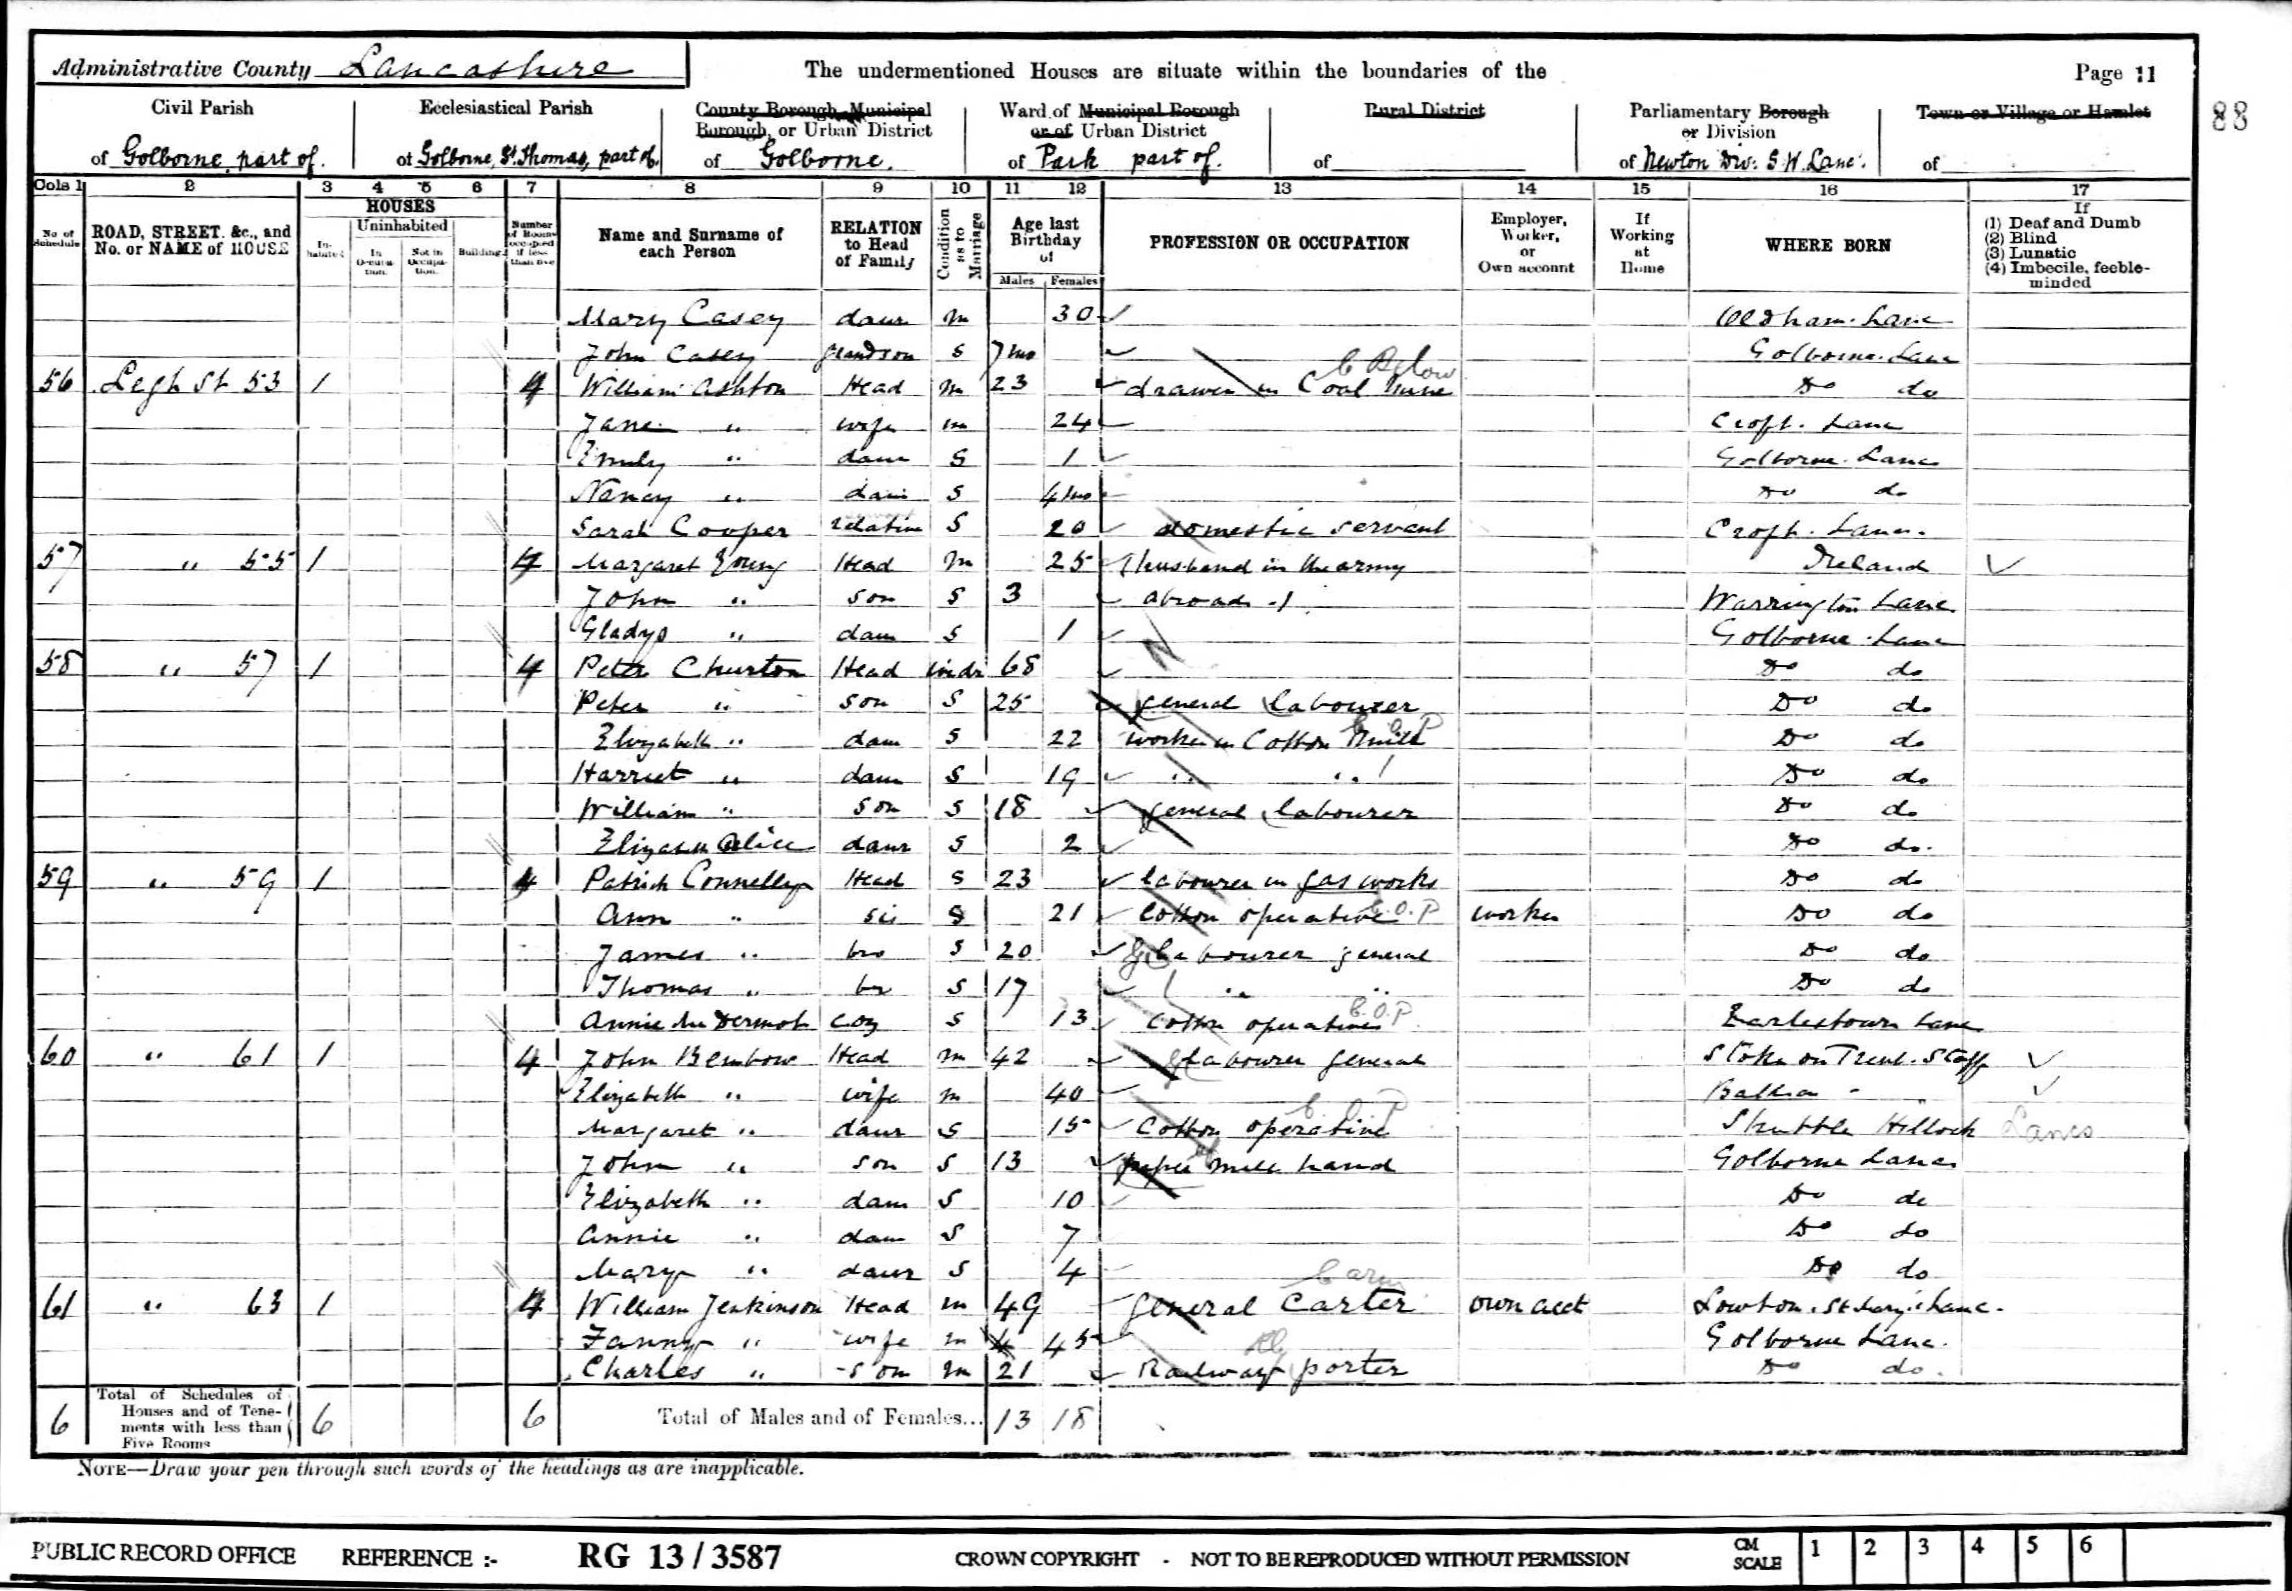 Administrative County Lancashire
The undermentioned Houses are situate within the boundaries of the
Page 11
88
Civil Parish
of Golborne part of.
Ecclesiastical Parish
of Golborne, St. Thomas, part of.
County Borough, Municipal Borough, or Urban District
of Golborne.
Ward of Municipal Borough or of Urban District
of Park part of.
Rural District
of
Parliamentary Borough or Division
of Newton Div: S.W. Lanc:
Town or Village or Hamlet
of
Cols 1 2 3 4 5 6 7 8 9 10 11 12 13 14 15 16 17
No. of Schedule
ROAD, STREET, &c., and No. or NAME of HOUSE
HOUSES
Inhabited
Uninhabited
In Occupation.
Not in Occupation.
Building.
Number of Rooms occupied if less than five
Name and Surname of each Person
RELATION to Head of Family
Condition as to Marriage
Age last Birthday of
Males Females
PROFESSION OR OCCUPATION
Employer, Worker, or Own account
If Working at Home
WHERE BORN
If
(1) Deaf and Dumb
(2) Blind
(3) Lunatic
(4) Imbecile, feeble-minded
Mary Casey daur m 30 Oldham. Lanc
John Casey grandson S 7 mo Golborne. Lanc
56 Legh St 53 1 4 William Ashton Head m 23 drawer in Coal Mine C Below Do do
Jane " wife m 24 Croft. Lanc
Emily " daur S 1 Golborne. Lanc
Nancy " daur S 4 mo Do do
Sarah Cooper relative S 20 domestic servant Croft. Lanc.
57 " 55 1 4 Margaret Young Head m 25 (husband in the army Ireland
John " son S 3 abroad -) Warrington Lanc
Gladys " daur S 1 Golborne. Lanc
58 " 57 1 4 Peter Churton Head widr 68 Do do
Peter " son S 25 general labourer Do do
Elizabeth " daur S 22 worker in Cotton Mill C.O.P Do do
Harriet " daur S 19 " " Do do
William " son S 18 general labourer Do do
Elizabeth Alice daur S 2 Do do.
59 " 59 1 4 Patrick Connelly Head S 23 labourer in gas works Do do
Ann " sis S 21 Cotton operative C.O.P worker Do do
James " bro S 20 labourer general Do do
Thomas " br S 17 " " Do do
Annie McDermot coz S 13 Cotton operative C.O.P Earlestown Lanc
60 " 61 1 4 John Benbow Head m 42 labourer general Stoke on Trent. Staff
Elizabeth " wife m 40
Margaret " daur S 15 Cotton operative C O P Shuttle Hillock Lancs
John " son S 13 paper mill hand Golborne Lanc.
Elizabeth " daur S 10 Do do
Annie " daur S 7 Do do
Mary " daur S 4 Do do
61 " 63 1 4 William Jenkinson Head m 49 general Carter Carm own acct Lowton. St Mary's Lanc.
Fanny " wife m 45 Golborne Lanc.
Charles " son m 21 Railway porter Rly Do do.
6 Total of Schedules of Houses and of Tenements with less than Five Rooms 6 6 Total of Males and of Females... 13 18
NOTE—Draw your pen through such words of the headings as are inapplicable.
PUBLIC RECORD OFFICE REFERENCE :- RG 13/3587 CROWN COPYRIGHT - NOT TO BE REPRODUCED WITHOUT PERMISSION CM SCALE 1 2 3 4 5 6